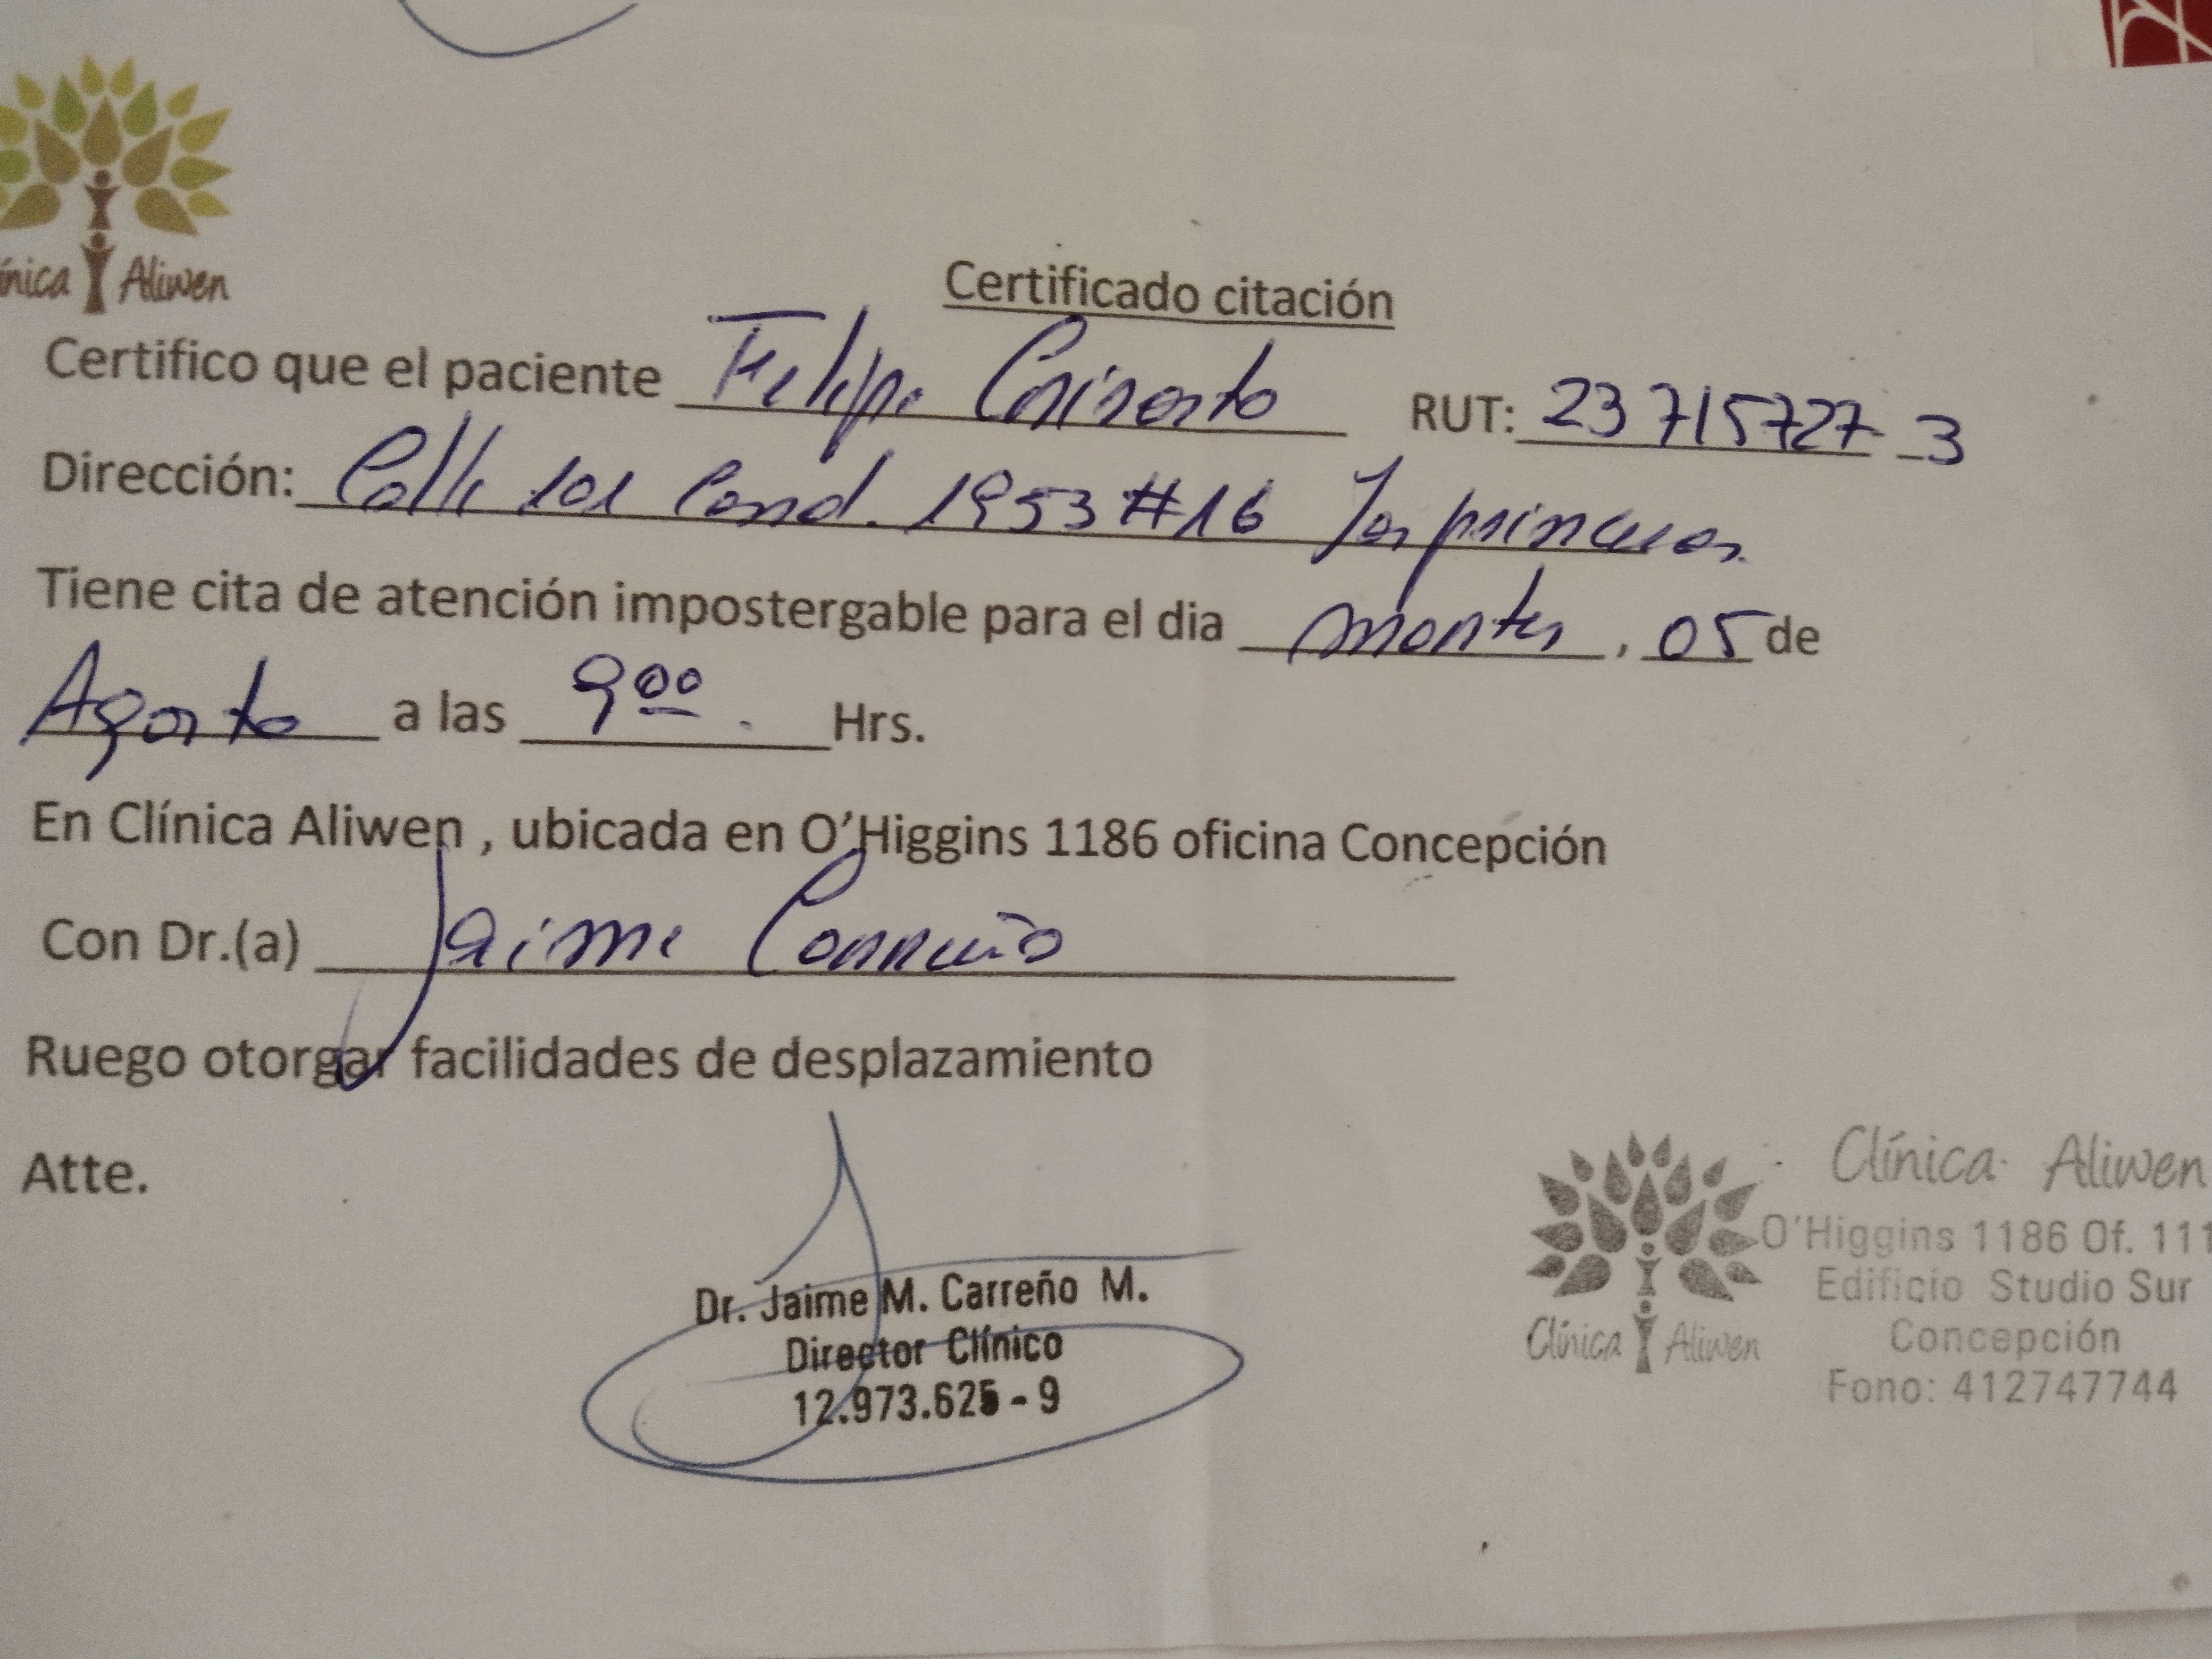 Clínica Aliwen
Certificado citación
Certifico que el paciente Felipe Crisosto RUT: 23 715727-3
Dirección: Calle 101 Cond. 1953 #16 Las princesas
Tiene cita de atención impostergable para el dia martes, 05 de
Agosto a las 9 00. Hrs.
En Clínica Aliwen , ubicada en O'Higgins 1186 oficina Concepción
Con Dr.(a) Jaime Carreño
Ruego otorgar facilidades de desplazamiento
Atte.
Dr. Jaime M. Carreño M.
Director Clínico
12.973.625 - 9
Clínica Aliwen
Clínica Aliwen
O'Higgins 1186 Of. 111
Edificio Studio Sur
Concepción
Fono: 412747744